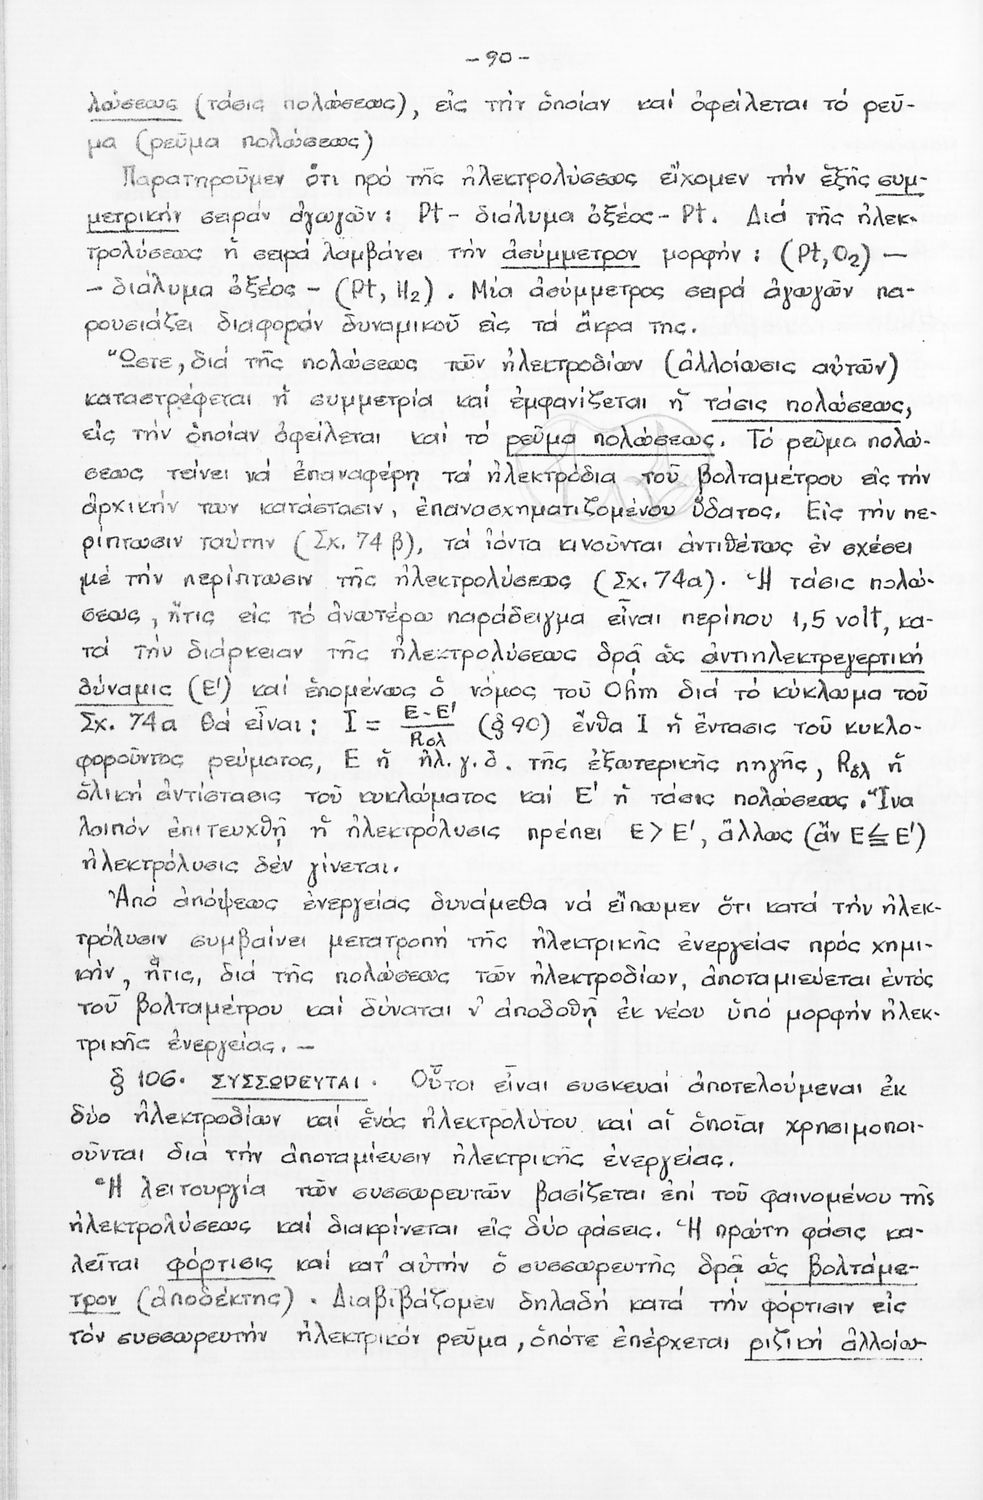 - 90 -
λώσεως (τάσις πολώσεως), εἰς τήν ὁποίαν καί ὀφείλεται τό ρεῦ-
μα (ρεῦμα πολώσεως)
Παρατηροῦμεν ὅτι πρό τῆς ἠλεκτρολύσεως εἴχομεν τήν ἑξῆς συμ-
μετρικήν σειράν ἀγωγῶν: Pt - διάλυμα ὀξέος - Pt. Διά τῆς ἠλεκ-
τρολύσεως ἡ σειρά λαμβάνει τήν ἀσύμμετρον μορφήν: (Pt, O₂) —
- διάλυμα ὀξέος - (Pt, H₂). Μία ἀσύμμετρος σειρά ἀγωγῶν πα-
ρουσιάζει διαφοράν δυναμικοῦ εἰς τά ἄκρα της.
Ὥστε, διά τῆς πολώσεως τῶν ἠλεκτροδίων (ἀλλοίωσις αὐτῶν)
καταστρέφεται ἡ συμμετρία καί ἐμφανίζεται ἡ τάσις πολώσεως,
εἰς τήν ὁποίαν ὀφείλεται καί τό ρεῦμα πολώσεως. Τό ρεῦμα πολώ-
σεως τείνει νά ἐπαναφέρῃ τά ἠλεκτρόδια τοῦ βολταμέτρου εἰς τήν
ἀρχικήν των κατάστασιν, ἐπανασχηματιζομένου ὕδατος. Εἰς τήν πε-
ρίπτωσιν ταύτην (Σχ. 74 β), τά ἰόντα κινοῦνται ἀντιθέτως ἐν σχέσει
μέ τήν περίπτωσιν τῆς ἠλεκτρολύσεως (Σχ. 74α). Ἡ τάσις πολώ-
σεως, ἥτις εἰς τό ἀνωτέρω παράδειγμα εἶναι περίπου 1,5 volt, κα-
τά τήν διάρκειαν τῆς ἠλεκτρολύσεως δρᾷ ὡς ἀντιηλεκτρεγερτική
δύναμις (E') καί ἑπομένως ὁ νόμος τοῦ Ohm διά τό κύκλωμα τοῦ
Σχ. 74α θά εἶναι: I = E-E' / Rολ (§ 90) ἔνθα I ἡ ἔντασις τοῦ κυκλο-
φοροῦντος ρεύματος, E ἡ ἠλ. γ. δ. τῆς ἐξωτερικῆς πηγῆς, Rολ ἡ
ὁλική ἀντίστασις τοῦ κυκλώματος καί E' ἡ τάσις πολώσεως. Ἵνα
λοιπόν ἐπιτευχθῇ ἡ ἠλεκτρόλυσις πρέπει E > E', ἄλλως (ἄν E ≦ E')
ἠλεκτρόλυσις δέν γίνεται.
Ἀπό ἀπόψεως ἐνεργείας δυνάμεθα νά εἴπωμεν ὅτι κατά τήν ἠλεκ-
τρόλυσιν συμβαίνει μετατροπή τῆς ἠλεκτρικῆς ἐνεργείας πρός χημι-
κήν, ἥτις, διά τῆς πολώσεως τῶν ἠλεκτροδίων, ἀποταμιεύεται ἐντός
τοῦ βολταμέτρου καί δύναται ν' ἀποδοθῇ ἐκ νέου ὑπό μορφήν ἠλεκ-
τρικῆς ἐνεργείας. —
§ 106. ΣΥΣΣΩΡΕΥΤΑΙ. Οὗτοι εἶναι συσκευαί ἀποτελούμεναι ἐκ
δύο ἠλεκτροδίων καί ἑνός ἠλεκτρολύτου καί αἱ ὁποῖαι χρησιμοποι-
οῦνται διά τήν ἀποταμίευσιν ἠλεκτρικῆς ἐνεργείας.
Ἡ λειτουργία τῶν συσσωρευτῶν βασίζεται ἐπί τοῦ φαινομένου τῆς
ἠλεκτρολύσεως καί διακρίνεται εἰς δύο φάσεις. Ἡ πρώτη φάσις κα-
λεῖται φόρτισις καί κατ' αὐτήν ὁ συσσωρευτής δρᾷ ὡς βολτάμε-
τρον (ἀποδέκτης). Διαβιβάζομεν δηλαδή κατά τήν φόρτισιν εἰς
τόν συσσωρευτήν ἠλεκτρικόν ρεῦμα, ὁπότε ἐπέρχεται ριζική ἀλλοίω-